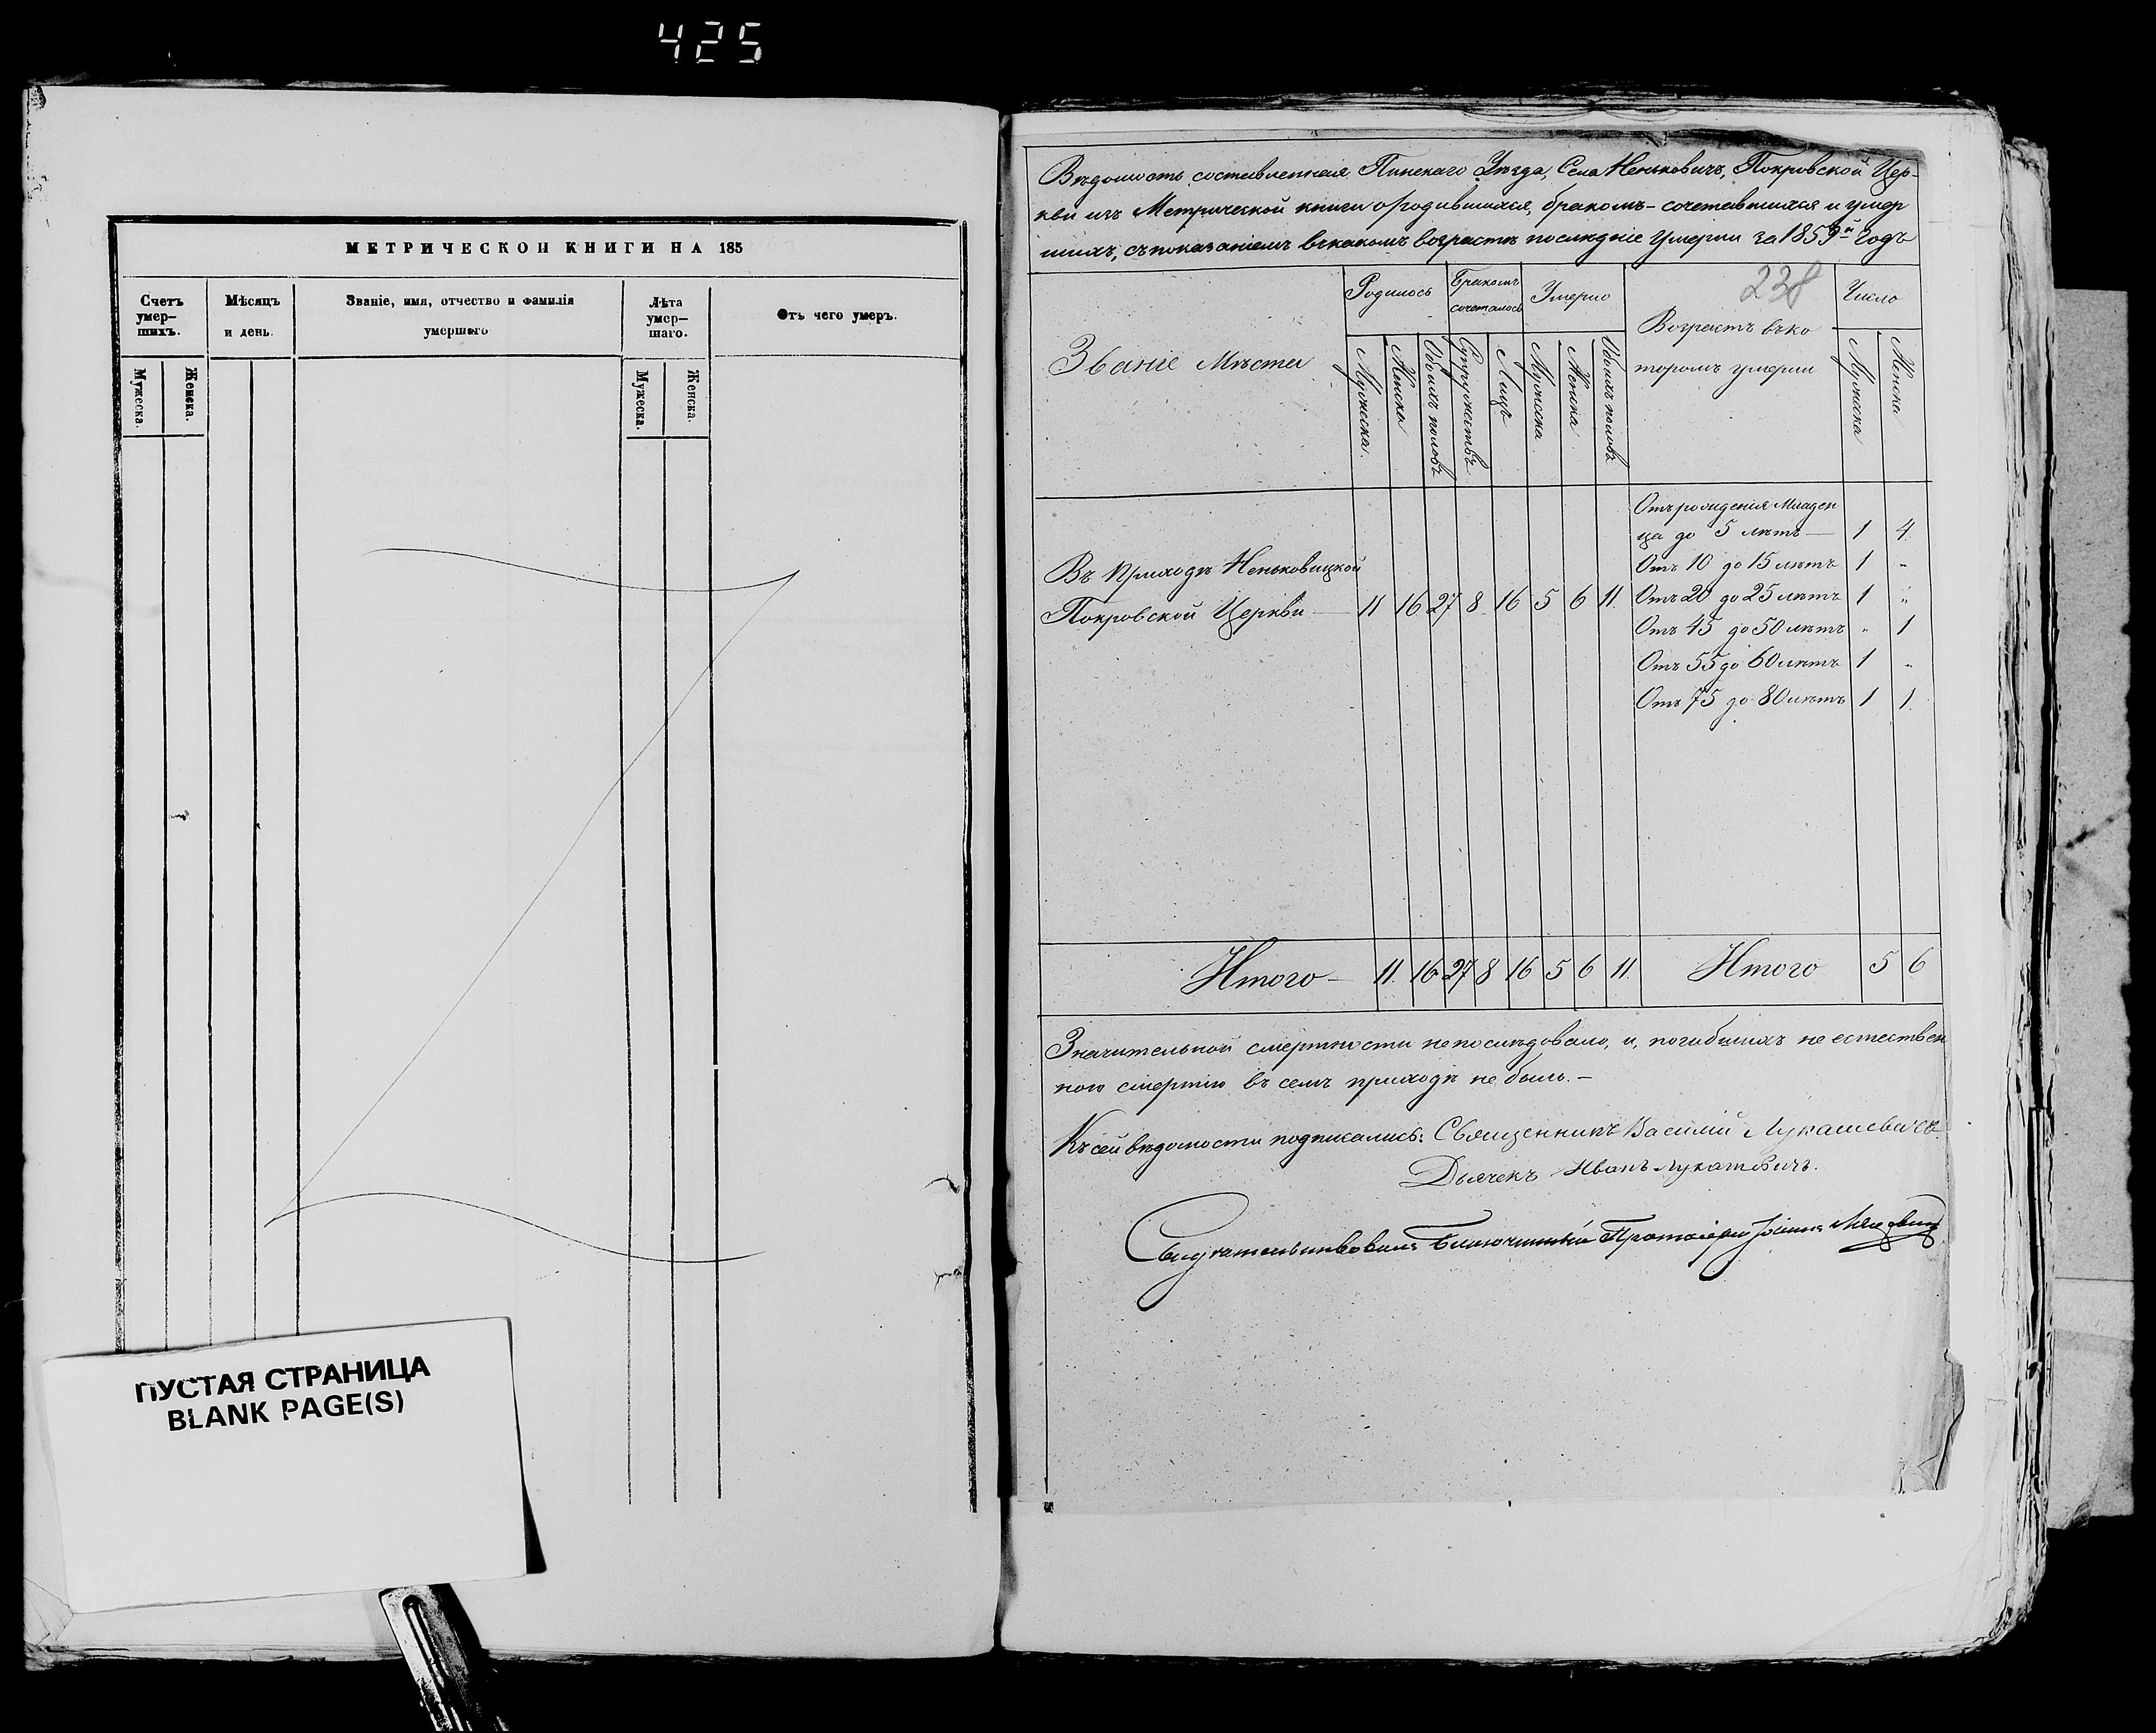 425
МЕТРИЧЕСКОЙ КНИГИ НА 185
Счетъ умер-шихъ.
Мѣсяцъ и день.
Званіе, имя, отчество и фамилія умершаго
Лѣта умер-шаго.
Отъ чего умеръ.
Мужеска.
Женска.
Мужеска.
Женска.
ПУСТАЯ СТРАНИЦА
BLANK PAGE(S)
Вѣдомость составленная Пинскаго Уѣзда, Села Неньковичъ, Покровской Цер-
кви изъ Метрической книги о родившихся, бракомъ-сочетавшихся и умер
шихъ, съ показаніемъ въ какомъ возрастѣ послѣдніе умерли за 1859й Годъ
238
Званіе Мѣста
Родилось
Бракомъ сочеталось
Умерло
Возрастъ въ ко
торомъ умерли
Число
Мужеска.
Женска
Обоихъ половъ
Супружествъ
Лицъ
Мужеска
Женска
Обоихъ половъ
Мужеска
Женска
Отъ рожденія Младен
ца до 5 лѣтъ — 1 4.
Въ Приходѣ Неньковицкой
Отъ 10 до 15 лѣтъ 1 "
Покровской Церкви — 11 16 27 8 16 5 6 11.
Отъ 20 до 25 лѣтъ 1 "
Отъ 45 до 50 лѣтъ " 1
Отъ 55 до 60 лѣтъ 1 "
Отъ 75 до 80 лѣтъ 1 1.
Итого — 11. 16 27 8 16 5 6 11. Итого 5 6
Значительной смертности не послѣдовало, и, погибшихъ не естествен
ною смертію въ семъ приходѣ не былъ. —
Къ сей вѣдомости подписались: Священникъ Василій Лукашевичъ.
Дьячекъ Иванъ Лукашевичъ.
Свидѣтельствовалъ Благочинный Протоіерей Іоаннъ